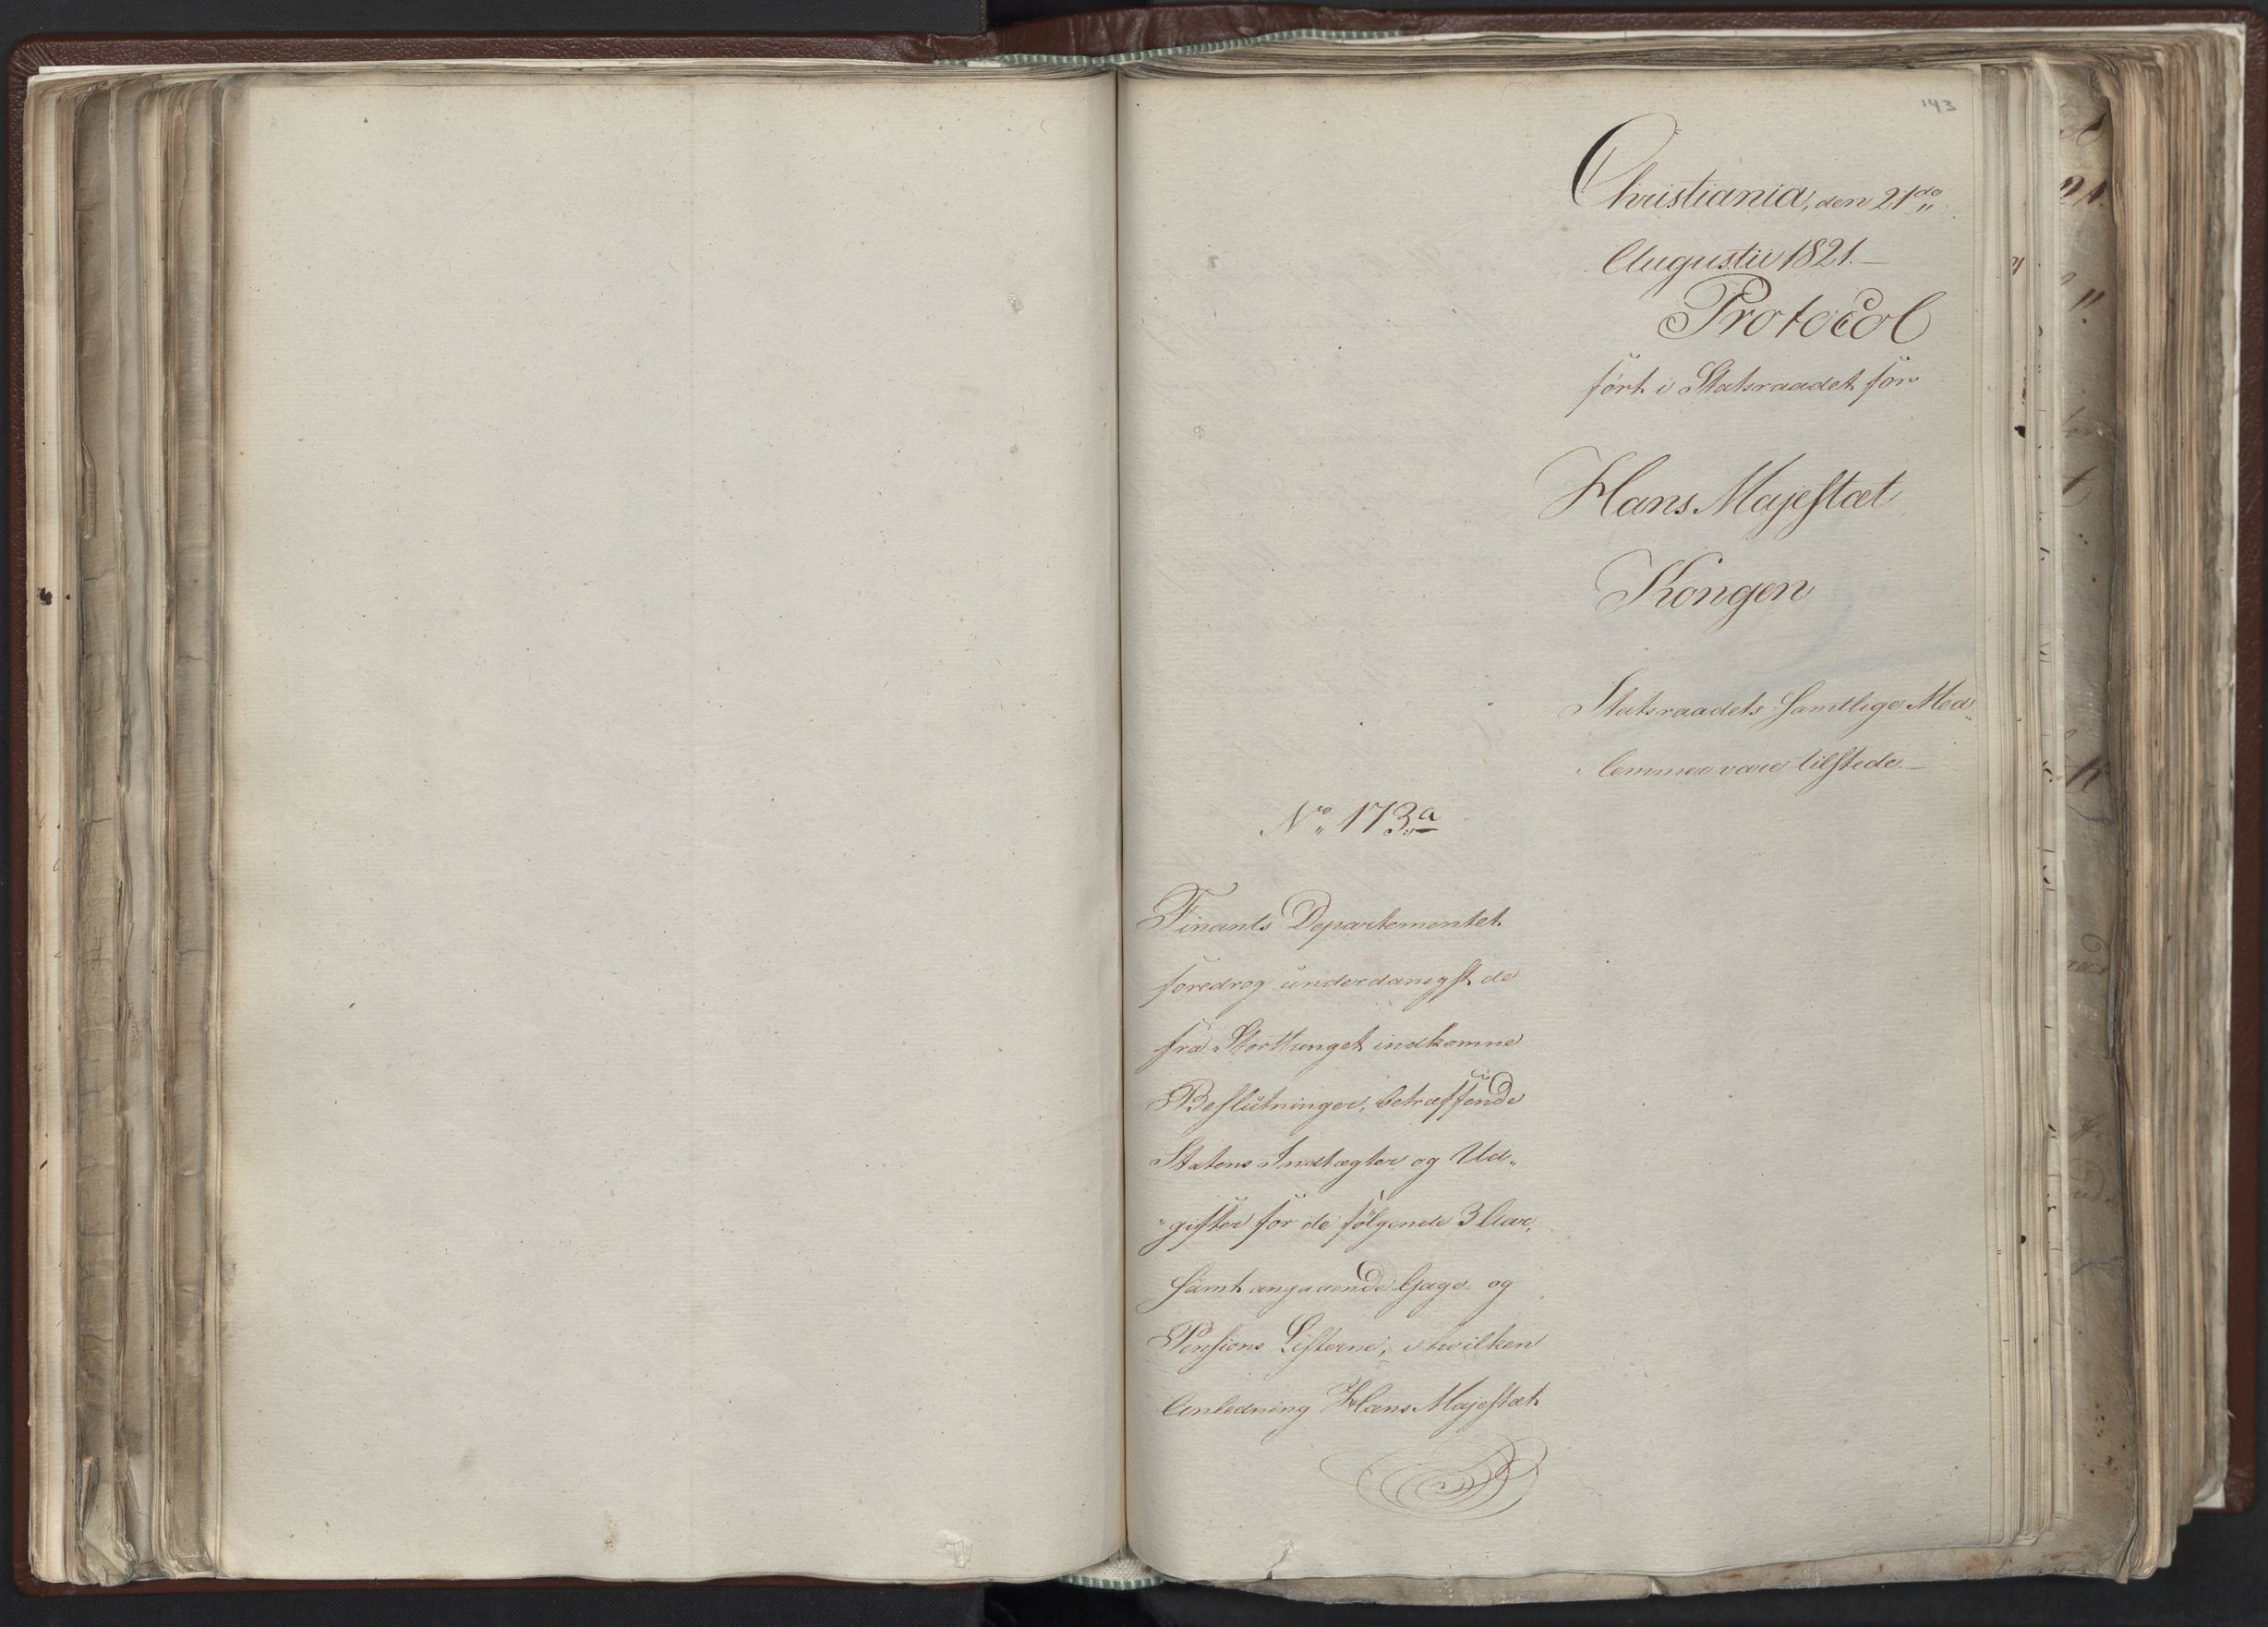 143
Christiania, den 21de
Augustii 1821.—
Protocol
ført i Statsraadet for
Hans Majestæt
Kongen
Statsraadets samtlige Med„
„lemmer vare tilstede.—
No 173.a
Finants Departementet
foredrog underdanigst de
fra Storthinget indkomne
Beslutninger, betræffende
Statens Indtægter og Ud„
„gifter for de følgende 3 Aar,
samt angaaende Gage og
Pensions Listerne, i hvilken
Anledning Hans Majestæt